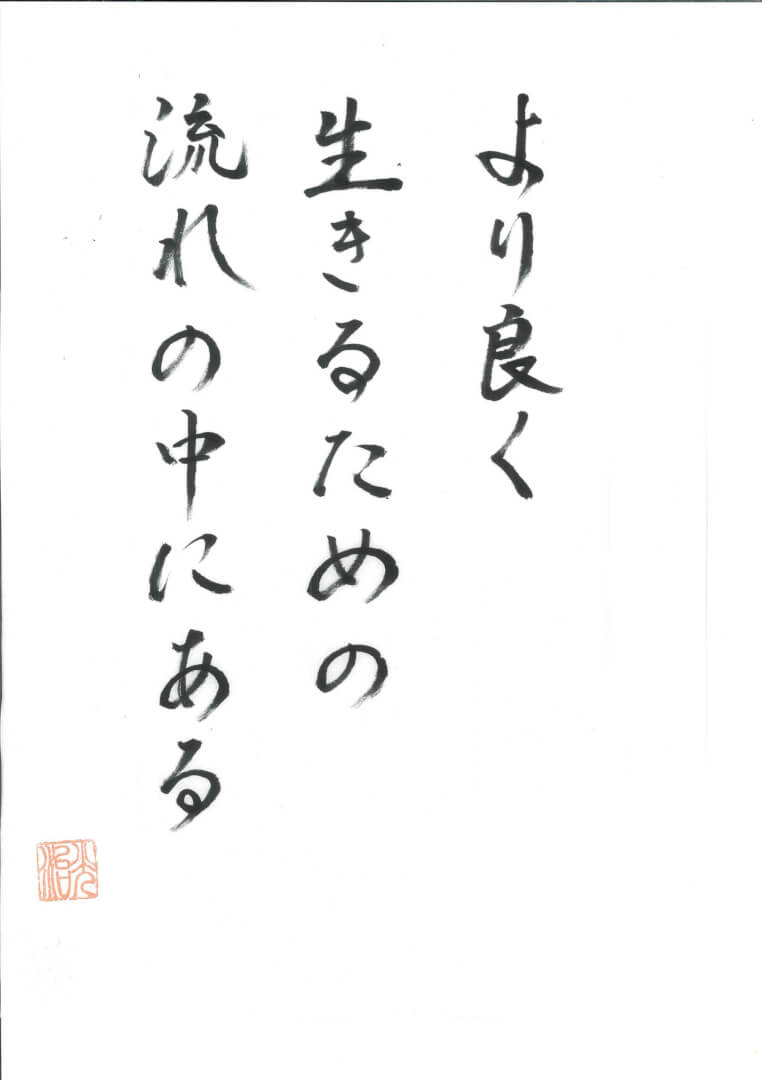 より良く
生きるための
流れの中にある